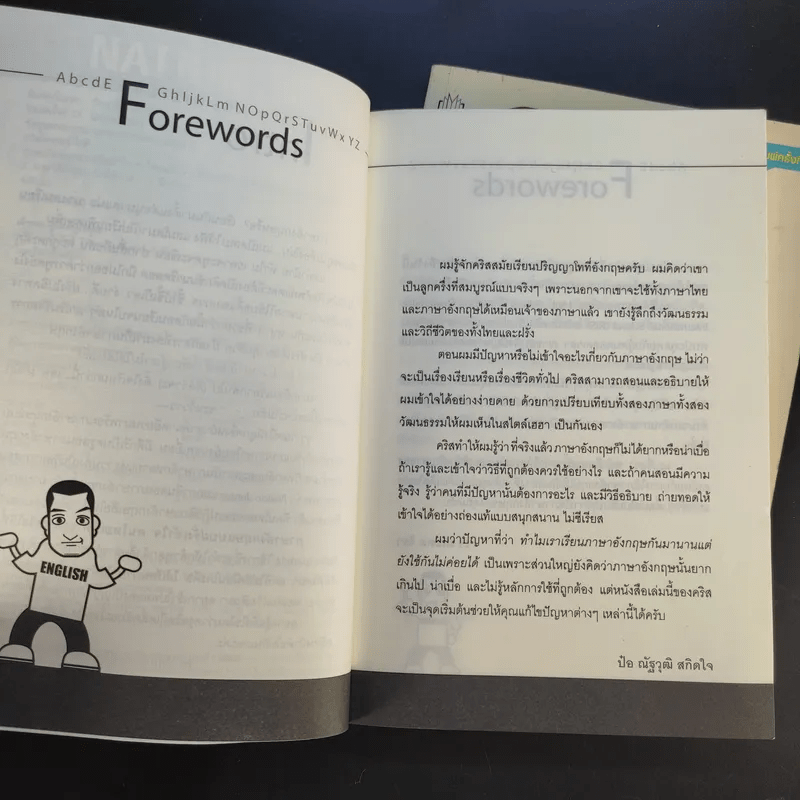 AbcdE
GhIjkLm NOpQrSTuvWxYZ
Forewords
ENGLISH
ผมรู้จักคริสสมัยเรียนปริญญาโทที่อังกฤษครับ ผมคิดว่าเขา
เป็นลูกครึ่งที่สมบูรณ์แบบจริงๆ เพราะนอกจากเขาจะใช้ทั้งภาษาไทย
และภาษาอังกฤษได้เหมือนเจ้าของภาษาแล้ว เขายังรู้ลึกถึงวัฒนธรรม
และวิถีชีวิตของทั้งไทยและฝรั่ง
ตอนผมมีปัญหาหรือไม่เข้าใจอะไรเกี่ยวกับภาษาอังกฤษ ไม่ว่า
จะเป็นเรื่องเรียนหรือเรื่องชีวิตทั่วไป คริสสามารถสอนและอธิบายให้
ผมเข้าใจได้อย่างง่ายดาย ด้วยการเปรียบเทียบทั้งสองภาษาทั้งสอง
วัฒนธรรมให้ผมเห็นในสไตล์เฮฮา เป็นกันเอง
คริสทำให้ผมรู้ว่าที่จริงแล้วภาษาอังกฤษก็ไม่ได้ยากหรือน่าเบื่อ
ถ้าเรารู้และเข้าใจว่าวิธีที่ถูกต้องควรใช้อย่างไร และถ้าคนสอนมีความ
รู้จริง รู้ว่าคนที่มีปัญหานั้นต้องการอะไร และมีวิธีอธิบาย ถ่ายทอดให้
เข้าใจได้อย่างถ่องแท้แบบสนุกสนาน ไม่ซีเรียส
ผมว่าปัญหาที่ว่า ทำไมเราเรียนภาษาอังกฤษกันมานานแต่
ยังใช้กันไม่ค่อยได้ เป็นเพราะส่วนใหญ่ยังคิดว่าภาษาอังกฤษนั้นยาก
เกินไป น่าเบื่อ และไม่รู้หลักการใช้ที่ถูกต้อง แต่หนังสือเล่มนี้ของคริส
จะเป็นจุดเริ่มต้นช่วยให้คุณแก้ไขปัญหาต่างๆ เหล่านี้ได้ครับ
ป๋อ ณัฐวุฒิ สกิดใจ